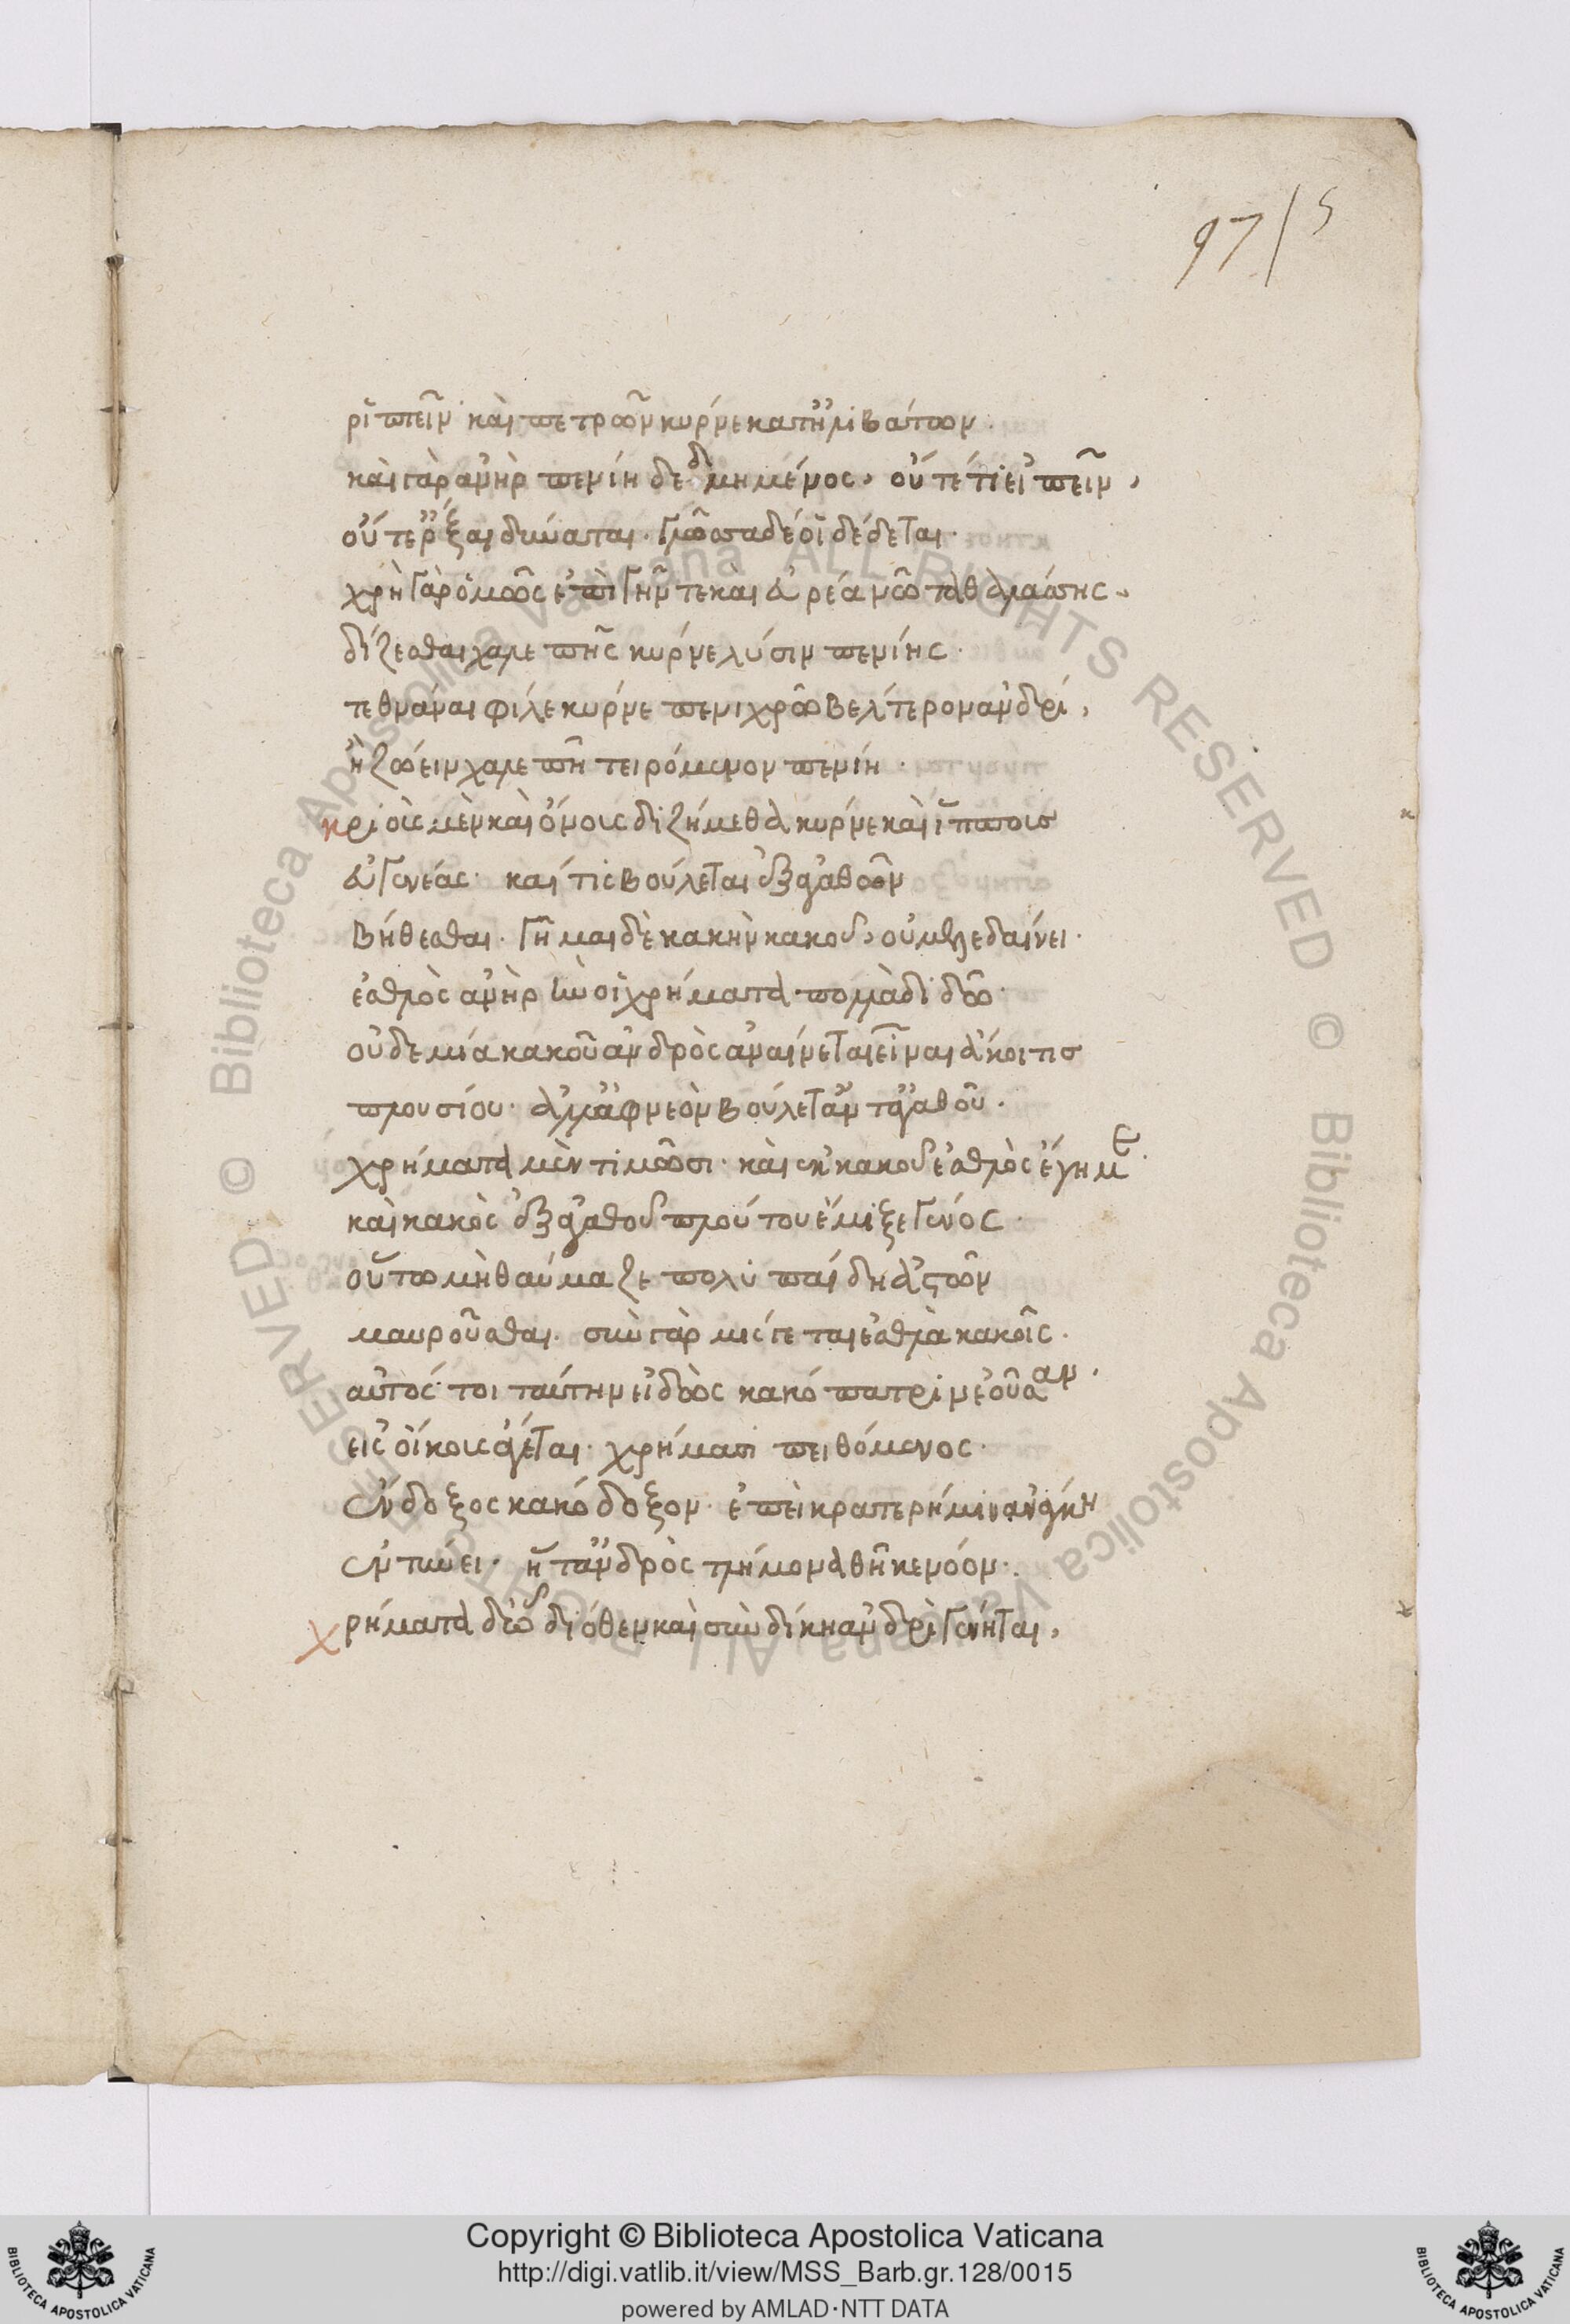 97/5
ριπτεῖν καὶ πετρῶν κύρνε κατ' ἠλιβάτων.
καὶ γὰρ ἀνὴρ πενίη δεδμημένος, οὔτέ τι εἰπεῖν,
οὔτ' ἔρξαι δύναται. γλῶσσα δέ οἱ δέδεται.
χρὴ γὰρ ὁμῶς ἐπὶ γῆν τε καὶ εὐρέα νῶτα θαλάσσης,
δίζεσθαι χαλεπῆς κύρνε λύσιν πενίης.
τεθνάναι φίλε κύρνε πενιχρῶ βέλτερον ἀνδρί,
ἢ ζώειν χαλεπῆ τειρόμενον πενίη.
κριοὺς μὲν καὶ ὄνους διζήμεθα κύρνε καὶ ἵππους
εὐγενέας. καί τις βούλεται ἐξ ἀγαθῶν
βήσεσθαι. γῆμαι δὲ κακὴν κακοῦ, οὐ μελεδαίνει.
ἐσθλὸς ἀνὴρ ἢν οἱ χρήματα πολλὰ διδῶ.
οὐδεμία κακοῦ ἀνδρὸς ἀναίνεται εἶναι ἄκοιτις
πλουσίου. ἀλλ' ἀφνεὸν βούλεται ἀντ' ἀγαθοῦ.
χρήματα μὲν τιμῶσι. καὶ ἐκ κακοῦ ἐσθλὸς ἔγημε.
καὶ κακὸς ἐξ ἀγαθοῦ πλούτου ἔμιξε γένος.
οὕτω μὴ θαύμαζε πολυπαίδη ἀστῶν
μαυροῦσθαι. σὺν γὰρ μίσγεται ἐσθλὰ κακοῖς.
αὐτός τοι ταύτην εἰδὼς κακόπατριν ἐοῦσαν.
εἰς οἴκους ἄγεται. χρήμασι πειθόμενος.
ἔνδοξος κακόδοξον. ἐπεὶ κρατερή μιν ἀνάγκη
ἐντύει. ἥτ' ἀνδρὸς τλήμονα θῆκε νόον.
χρήματα δ' ὧ διόθεν καὶ σὺν δίκη ἀνδρὶ γένηται,
Copyright © Biblioteca Apostolica Vaticana
http://digi.vatlib.it/view/MSS_Barb.gr.128/0015
powered by AMLAD·NTT DATA